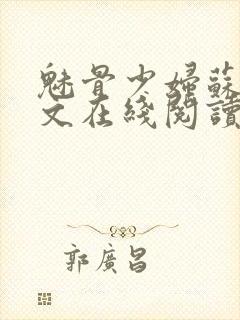 魅骨少婦蘇
文在綫閱讀
郭廣昌